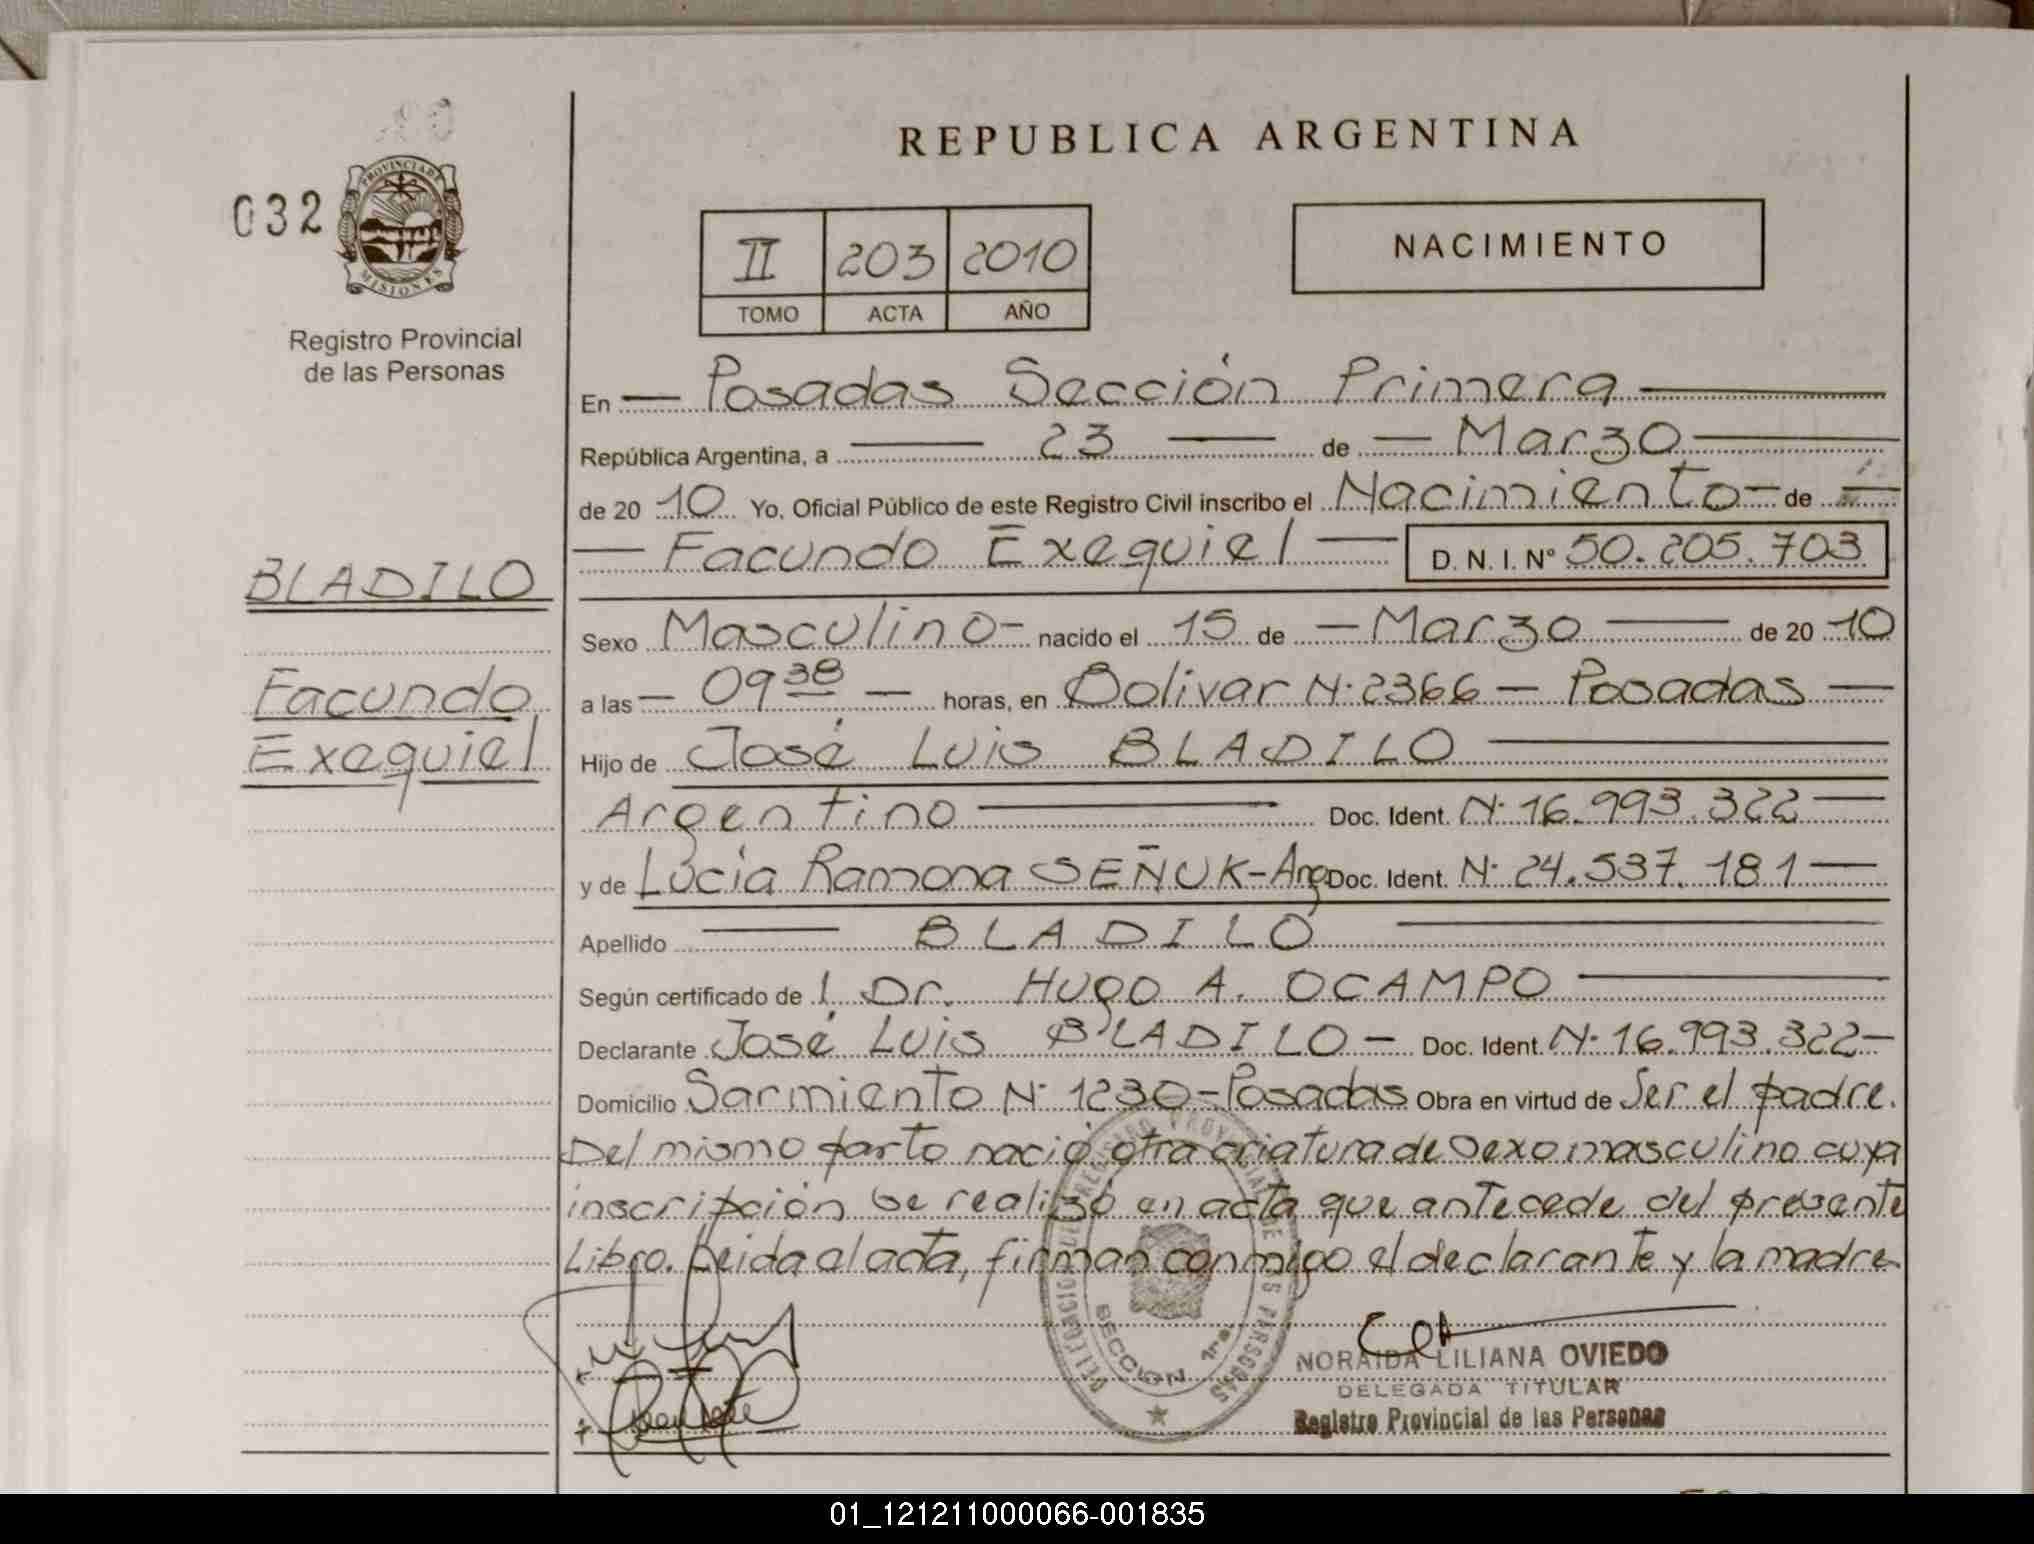 032
PROVINCIA DE
MISIONES
Registro Provincial
de las Personas
REPUBLICA ARGENTINA
II 203 2010
TOMO ACTA AÑO
NACIMIENTO
En — Posadas Sección Primera —
República Argentina, a — 23 — de — Marzo —
de 2010 Yo, Oficial Público de este Registro Civil inscribo el Nacimiento — de —
— Facundo Exequiel — D. N. I. Nº 50.205.703
BLADILO
Facundo
Exequiel
Sexo Masculino — nacido el 15 de — Marzo — de 2010
a las — 09 38 — horas, en Bolivar N· 2366 — Posadas —
Hijo de José Luis BLADILO —
Argentino — Doc. Ident. N· 16.993.322 —
y de Lucía Ramona SEÑUK - Arg Doc. Ident. N· 24.537.181 —
Apellido — BLADILO —
Según certificado de l Dr. Hugo A. OCAMPO —
Declarante José Luis BLADILO — Doc. Ident. N· 16.993.322 —
Domicilio Sarmiento N· 1230 - Posadas Obra en virtud de Ser el padre.
Del mismo parto nació otra criatura de sexo masculino cuya
inscripción se realizó en acta que antecede del presente
Libro. Leida el acta, firman conmigo el declarante y la madre
DELEGACION REGISTRO PROVINCIAL DE LAS PERSONAS
SECCION 1ra.
NORAIDA LILIANA OVIEDO
DELEGADA TITULAR
Registro Provincial de las Personas
01_121211000066-001835